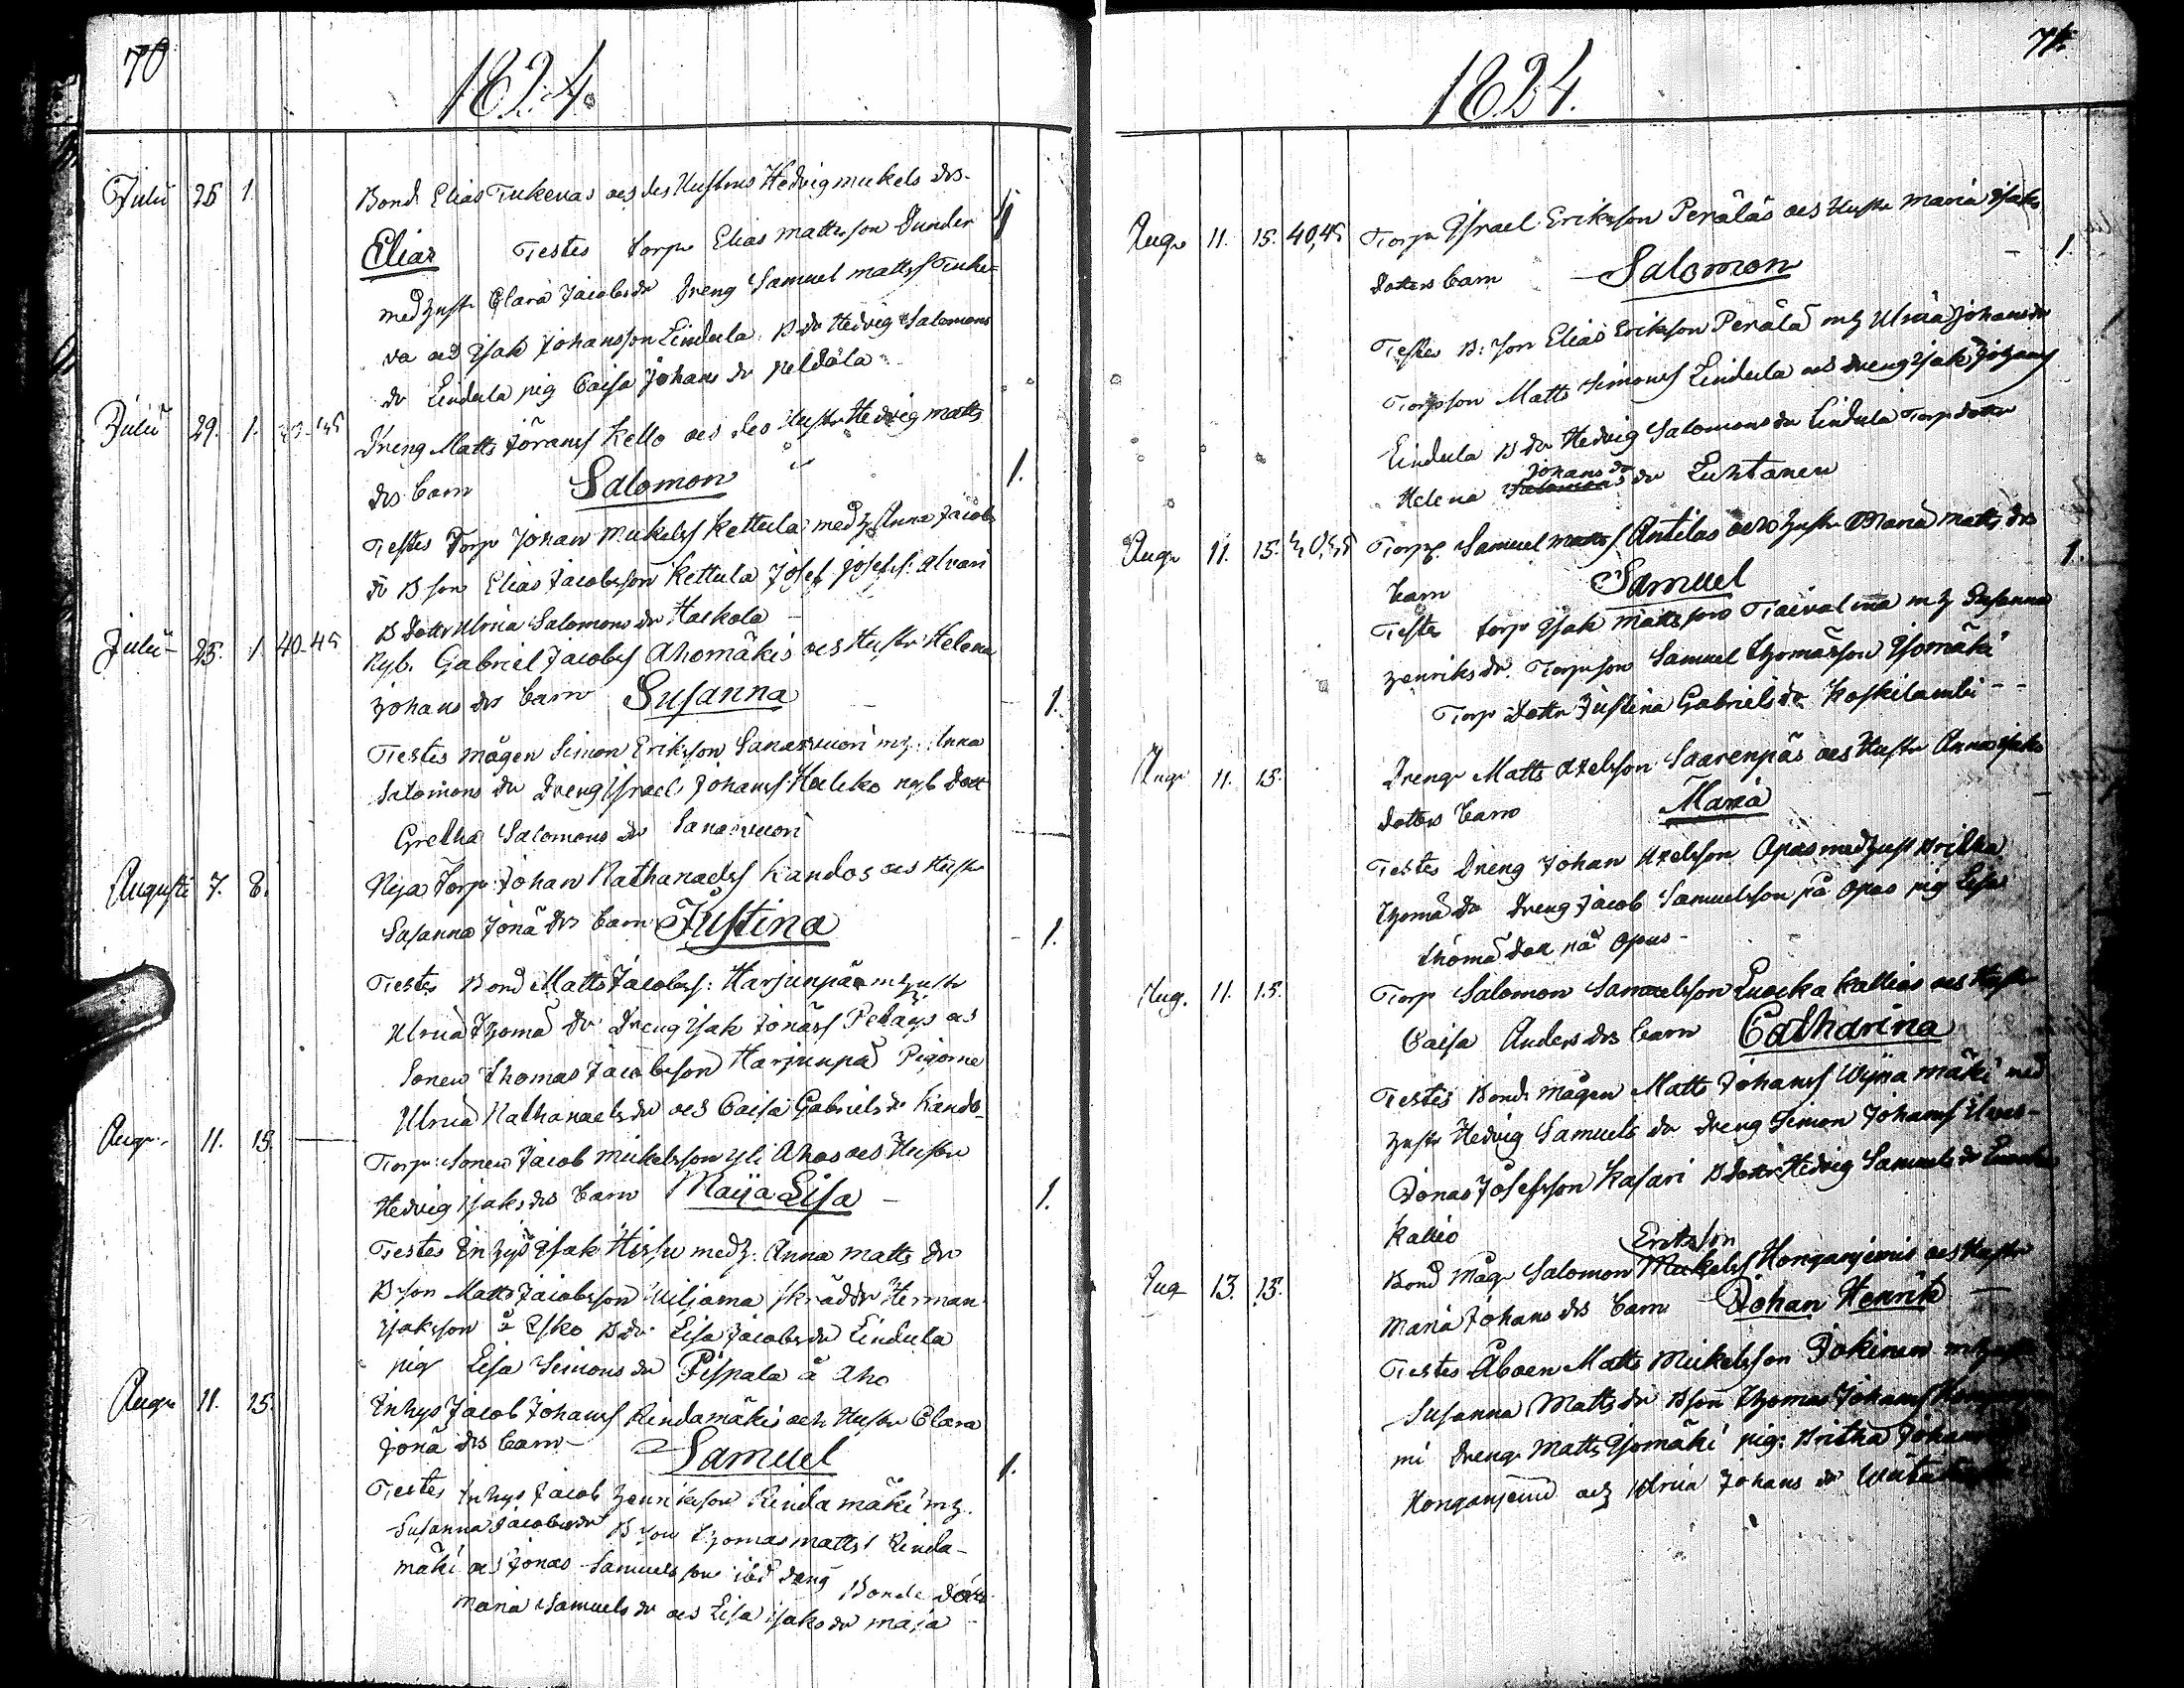 70
1824.
Julii 25 1. Bond. Elias Tukevas och des Hustrus Hedvig mickels drs.
Elias Testes torp. Elias mattsson Sunder 1
med hustr Clara Jacobs dr Dreng Samuel matts Tuke=
va och Isak Johansson Lindula B dr Hedvig Salomons
dr Lindula pig Caisa Johans dr peldola
Julii 29. 1. Dreng Matts Jörans Kello och des Hustr Hedvig matts
drs barn Salomon 1.
Testes Torp Johan Mickels Kettula med h. Anna Jacobs
dr B son Elias Jacobsson Kettula Josef Josefs: Alvari
B Dottr Ulrica Salomons dr Hackola
Julii 25. 1 40-45 Nyb. Gabriel Jacobs Ahomäkis och Hustr Helena
Johans drs barn Susanna 1.
Testes mågen Simon Eriksson Sanasvuori m h. Anna
Salomons dr Dreng Israel Johans Haliko nyb Dott
Gretha Salomons dr Sanasvuori
Augusti 7. 8. Nya Torp. Johan Nathanaels Kandos och Hustr
Susanna Jonä drs barn Justina 1.
Testes Bond Matts Jacobs: Harjunpää m hustr
Ulrica Thomä dr Dreng Isak Jonäs Peläys och
Sonen Thomas Jacobsson Harjunpä Pigorne
Ulrica Nathanaels dr och Caisa Gabriels dr Kando
Aug. 11. 15. Torp. Sonen Jacob Mickelsson Yli Ahos och Hustru
Hedvig Isaks drs barn Maija Lisa 1.
Testes Inhys Isak Hissu med h. Anna matts dr
B son Matts Jacobsson Viljama skräddr Herman
Isaksson å Esko B dr Lisa Jacobs dr Lindula
pig Lisa Simons dr Pispala å Aho
Aug. 11. 15. Inhys Jacob Johans Rindamäkis och Hustr Clara
Jonä drs barn Samuel 1.
Testes Inhys Jacob Henriksson Rindamäki m h.
Susanna Jacobs dr B son Thomas matts Rinda-
mäki och Jonas Samuelsson ibd Bonde Dottr
Maria Samuels dr och Lisa Isaks dr maja
71
1824.
Aug. 11. 15. 40,45 Torp Israel Eriksson Perälas och Hustr Maria Isaks
dotters barn Salomon 1.
Testes B: son Elias Eriksson Perälä m h Ulrica Johans dr
Torpson Matts Simons Lindula och Dreng Isak Johans
Lindula B dr Hedvig Salomons dr Lindula Torp dotter
Johans dr
Helena Salomons dr Luhtanen
Aug. 11. 15. 40,45 Torp. Samuel Matts Antilas och hustr Maria Matts drs
barn Samuel 1.
Testes torp Isak Mattsson Taivalma m h Susanna
Henriks dr. Torp son Samuel Thomasson Isomäki
Torp Dottr Justina Gabriels dr Koskilambi - -
Aug. 11. 15. Dreng Matts Axelsson Saarenpäs och Hustr Anna Isaks
dotters barn Maria
Testes Dreng Johan Axelsson Opas med hust Britha
Thomä dr Dreng Jacob Samuelsson på Opas pig Lisa
Thomä dotr på Opas -
Aug. 11. 15. Torp Salomon Samuelsson Luocka Kallios och Hustr
Caisa Anders drs barn Catharina
Testes Bond. Mågen Matts Johans Mäki med
hustr Hedvig Samuels dr Dreng Simon Johans
Jonas Josefsson Kasari B dottr Hedvig Samuels dr
Kallio
Eriksson
Aug 13. 15. Bond Måg. Salomon Mickels Honganjemis och Hustr
Maria Johans drs barn Johan Henrik
Testes Åboen Matts Mickelsson Jokinen m hustr
Susanna Matts dr B son Thomas Johans
mi Dreng Matts Isomäki pig. Britha Johans
Honganjemi och Ulrica Johans dr